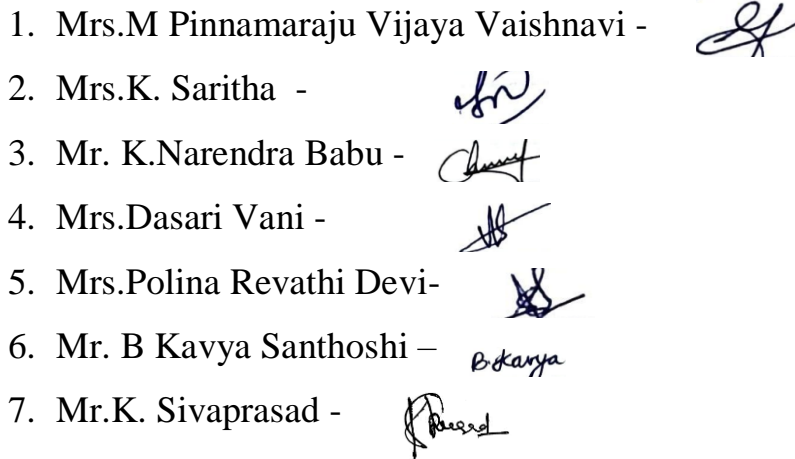 1. Mrs.M Pinnamaraju Vijaya Vaishnavi -
2. Mrs.K. Saritha -
3. Mr. K.Narendra Babu -
4. Mrs.Dasari Vani -
5. Mrs.Polina Revathi Devi-
6. Mr. B Kavya Santhoshi – B.Kavya
7. Mr.K. Sivaprasad -